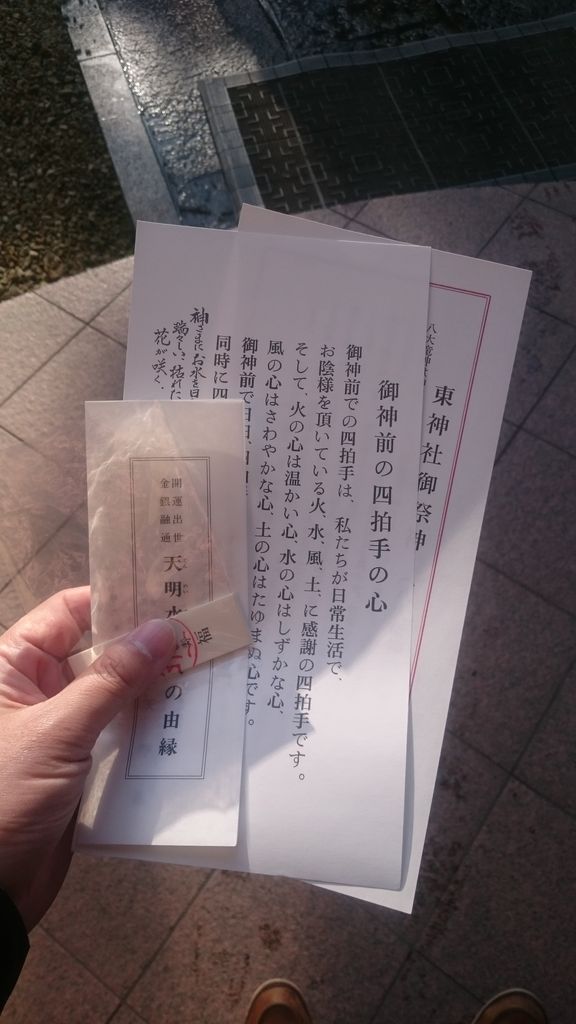 八大竜神
東神社御祭神
御神前の四拍手の心
御神前での四拍手は、私たちが日常生活で、
お陰様を頂いている火、水、風、土、に感謝の四拍手です。
そして、火の心は温かい心、水の心はしずかな心、
風の心はさわやかな心、土の心はたゆまぬ心です。
御神前で
同時に四
神さまにお水を
瑞々しい、枯れた
花が咲く、
開運出世
金銀融通
天明水 の由縁
福